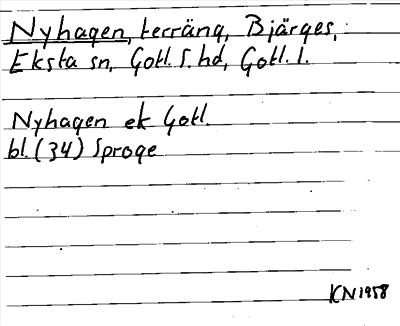 Nyhagen, terräng, Bjärges,
Eksta sn, Gotl. S. hd, Gotl. l.
Nyhagen ek Gotl.
bl. (34) Sproge
KN 1958